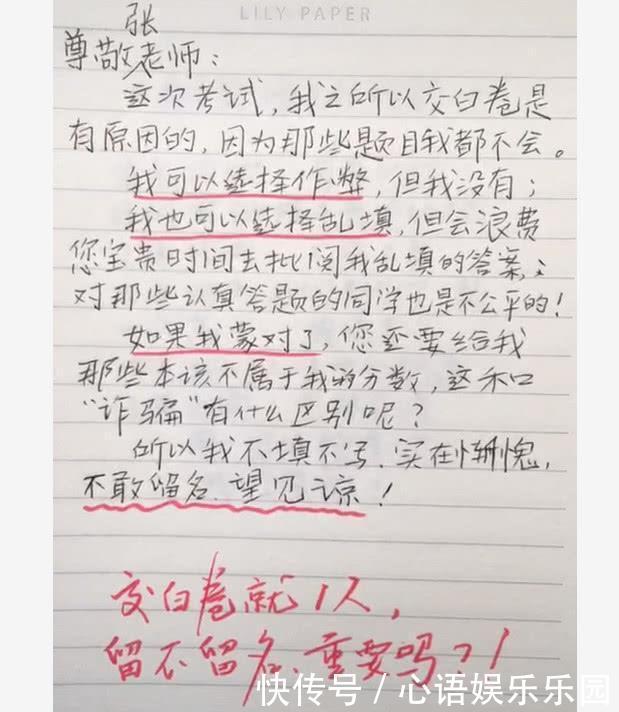 LILY PAPER
尊敬张老师：
这次考试，我之所以交白卷是
有原因的，因为那些题目我都不会。
我可以选择作弊，但我没有；
我也可以选择乱填，但会浪费
您宝贵时间去批阅我乱填的答案；
对那些认真答题的同学也是不公平的！
如果我蒙对了，您还要给我
那些本该不属于我的分数，这和
“诈骗”有什么区别呢？
所以我不填不写．实在惭愧，
不敢留名．望见谅！
交白卷就1人，
留不留名、重要吗？！
快传号／心语娱乐乐园